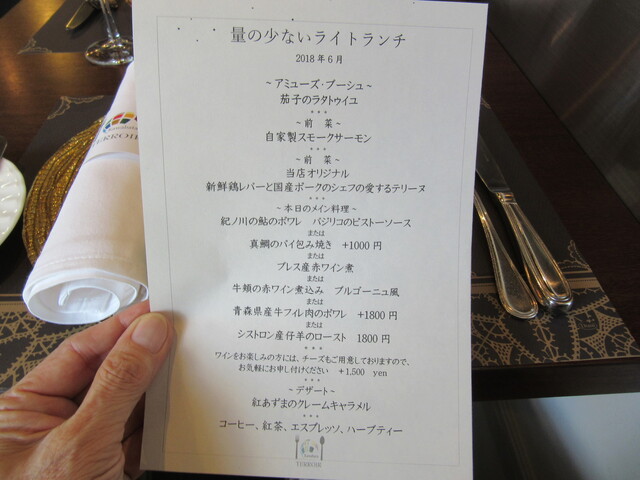 量の少ないライトランチ
2018年6月
~アミューズ・ブーシュ~
茄子のラタトゥイユ
***
~前 菜~
自家製スモークサーモン
***
~前 菜~
当店オリジナル
新鮮鶏レバーと国産ポークのシェフの愛するテリーヌ
***
~本日のメイン料理~
紀ノ川の鮎のポワレ バジリコのピストーソース
または
真鯛のパイ包み焼き +1000円
または
ブレス産赤ワイン煮
または
牛頬の赤ワイン煮込み ブルゴーニュ風
または
青森県産牛フィレ肉のポワレ +1800円
または
シストロン産仔羊のロースト 1800円
***
ワインをお楽しみの方には、チーズもご用意しておりますので、
お気軽にお申し付けください +1,500 yen
***
~デザート~
紅あずまのクレームキャラメル
***
コーヒー、紅茶、エスプレッソ、ハーブティー
TERROIR
TERROIR